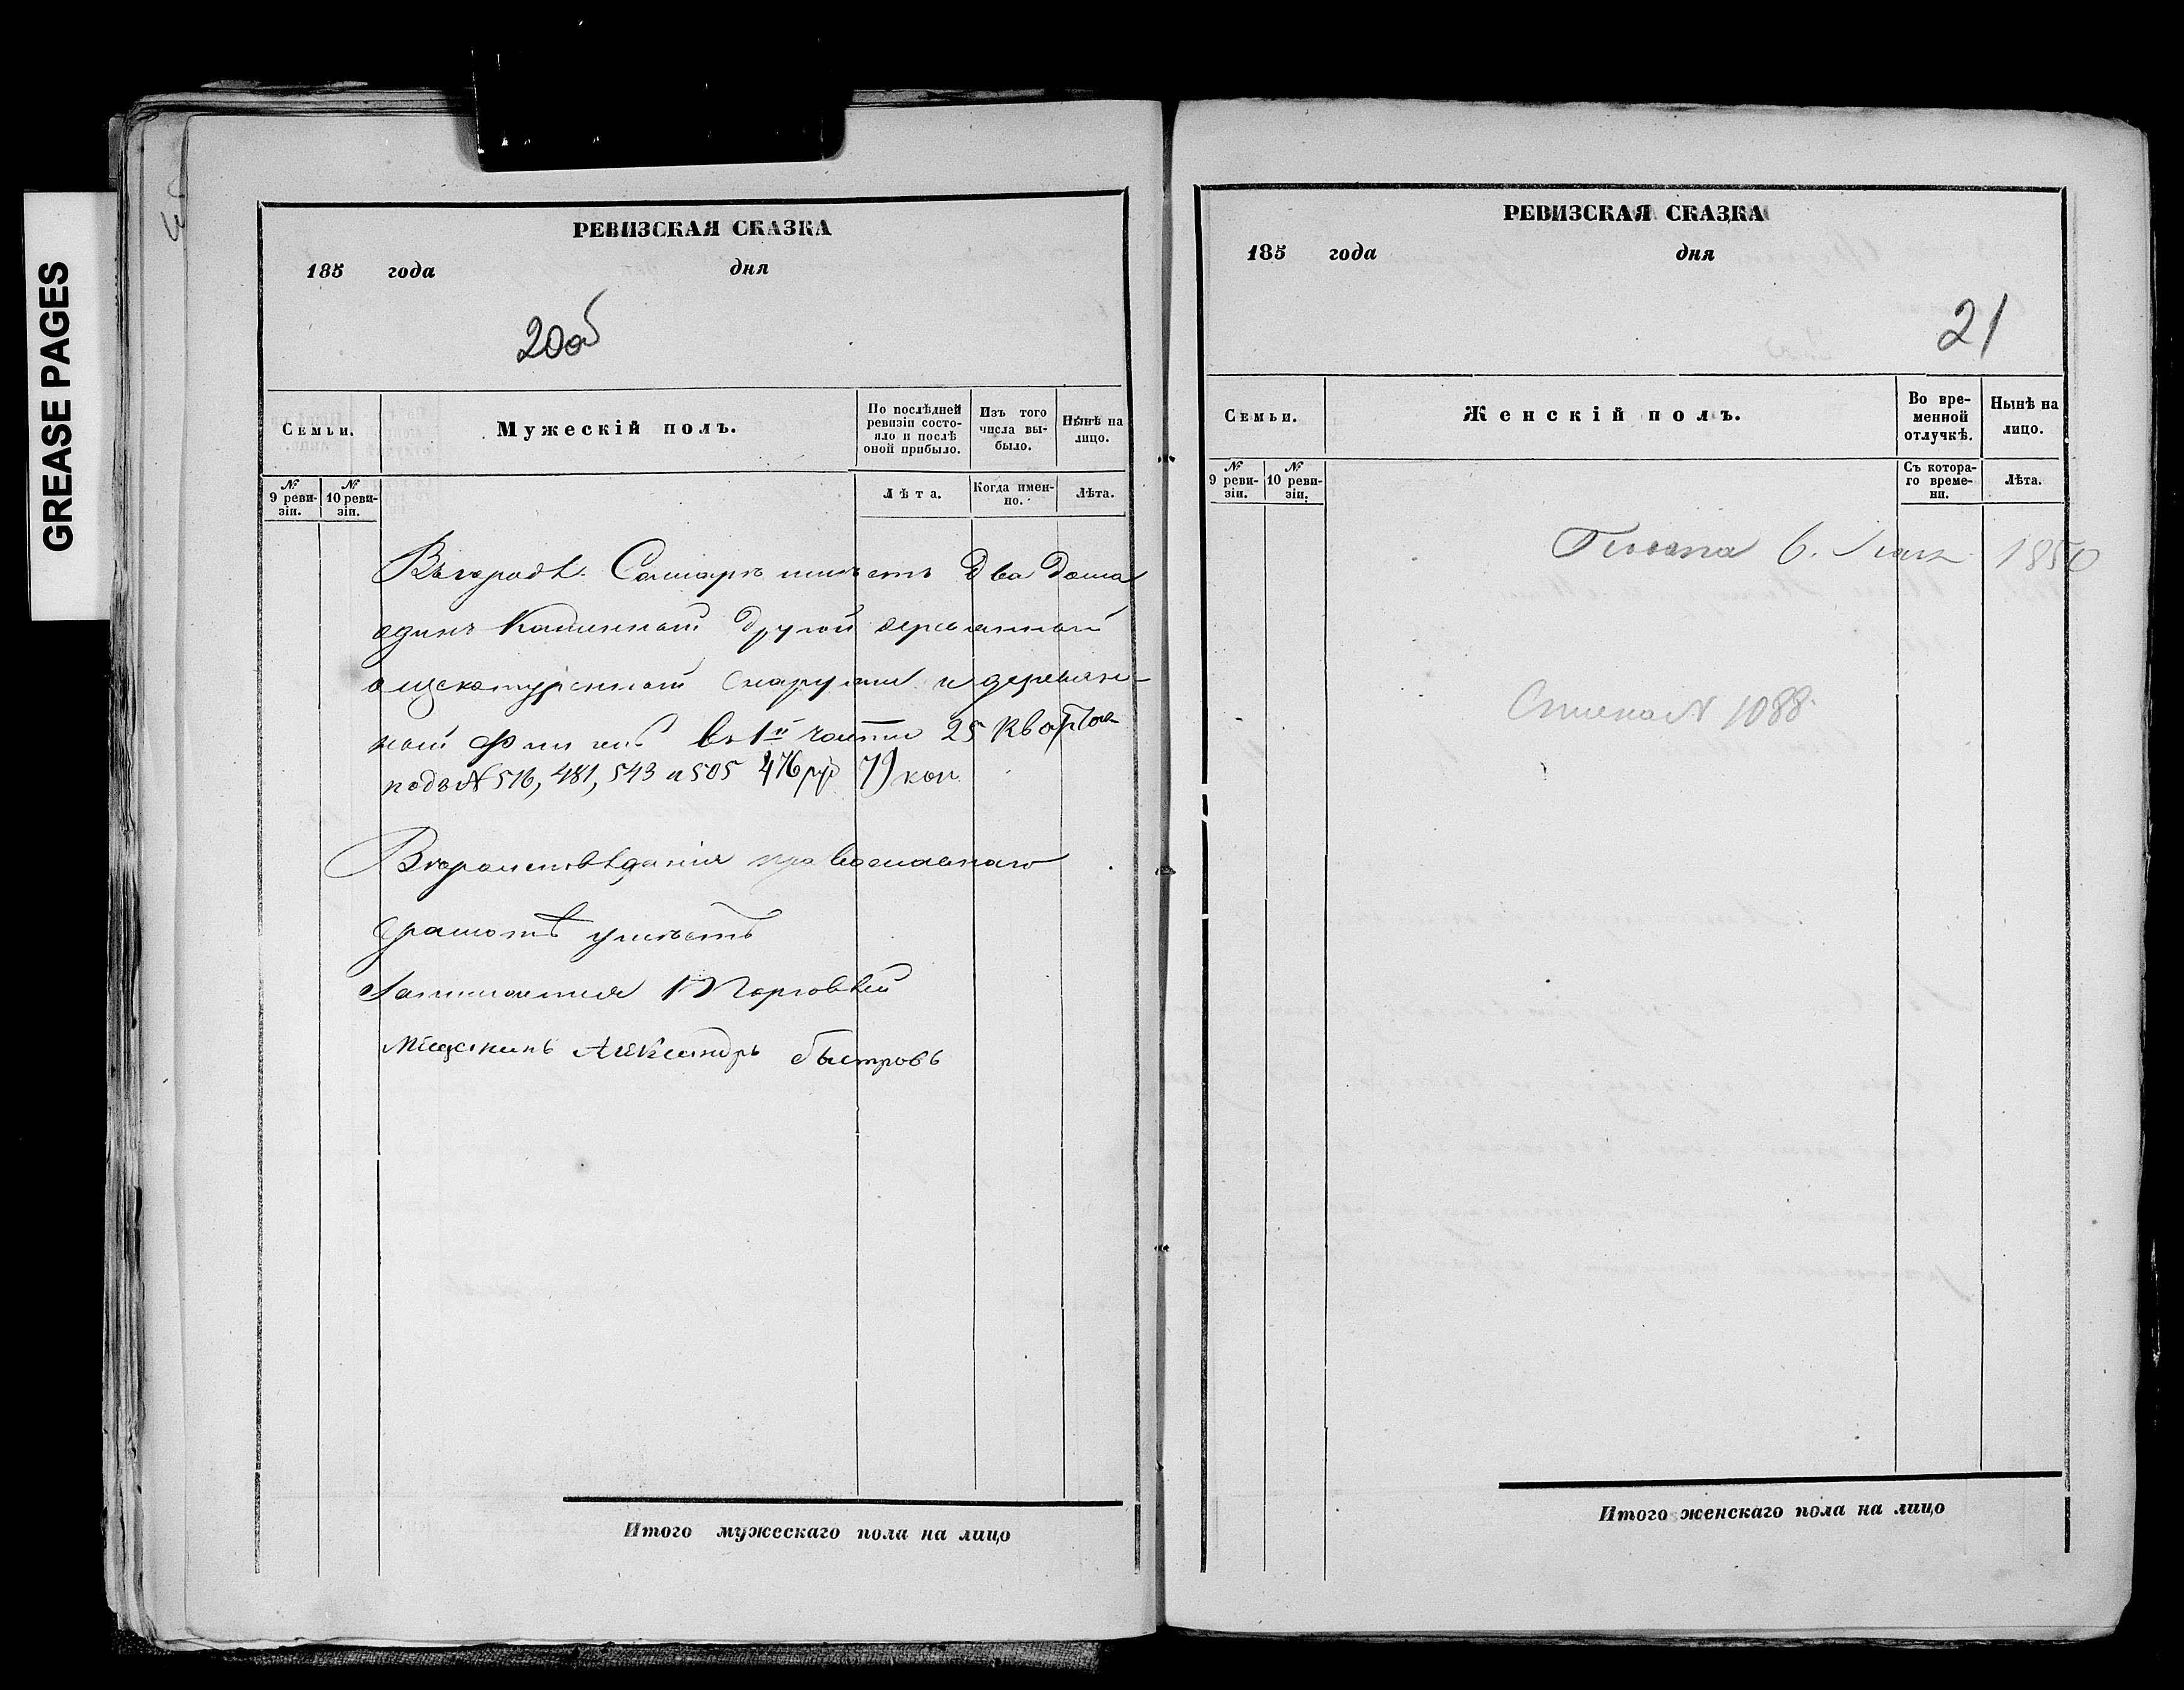 GREASE PAGES
РЕВИЗСКАЯ СКАЗКА
185 года дня
20об
Семьи.
Мужескій полъ.
По послѣдней ревизіи состояло и послѣ оной прибыло.
Изъ того числа выбыло.
Нынѣ на лицо.
№ 9 ревизіи.
№ 10 ревизіи.
Лѣта.
Когда именно.
Лѣта.
Въ городѣ Самарѣ имѣетъ два дома
одинъ каменный другой деревянный
ощекатуренный снаружи и деревян-
ный флигель в 1й части 25 квартале
подъ № 516, 481, 543 и 505 476 руб 79 коп
Вѣроисповѣданія православнаго
Грамотѣ умѣетъ
Занимается Торговлей
Мѣщанинъ Александръ Быстровъ
Итого мужескаго пола на лицо
РЕВИЗСКАЯ СКАЗКА
185 года дня
21
Семьи.
Женскій полъ.
Во временной отлучкѣ.
Нынѣ на лицо.
№ 9 ревизіи.
№ 10 ревизіи.
Съ котораго времени.
Лѣта.
1850
№ 1088
Итого женскаго пола на лицо